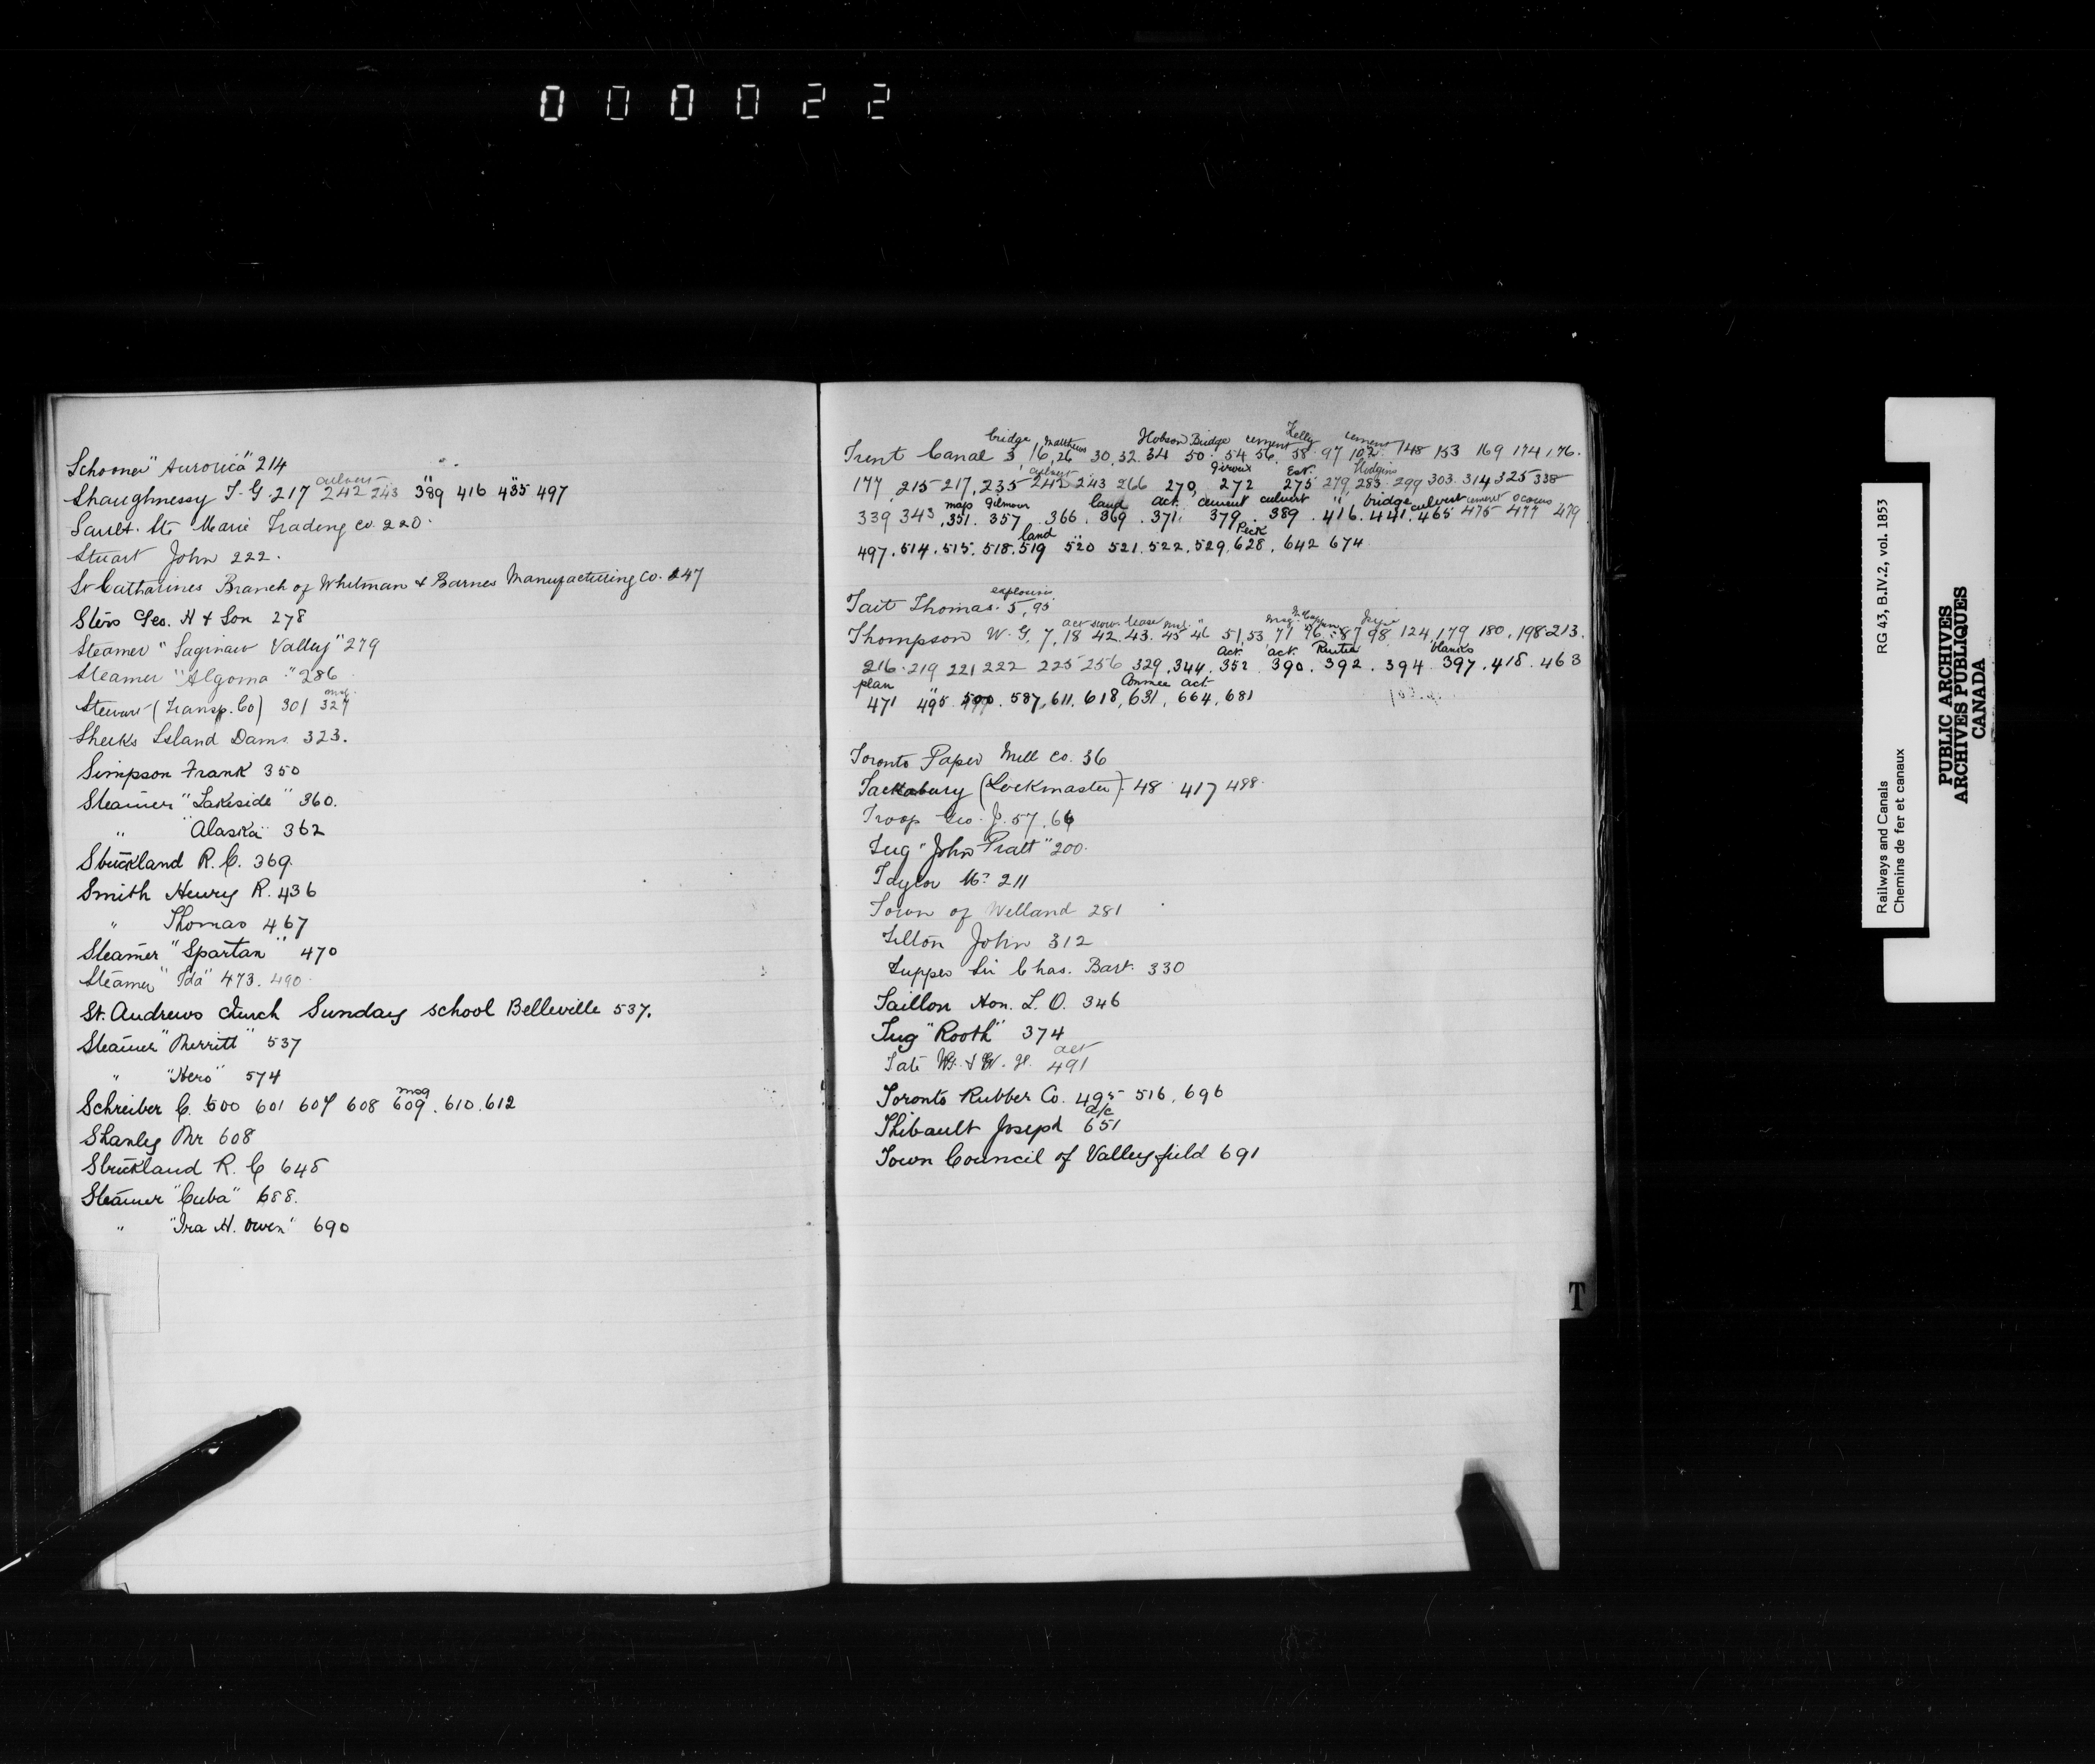 000022
Schooner "Aurorica" 214
culvert " "
Shaughnessy T. G. 217 242 243 389 416 435 497
Sault. Ste Marie Trading Co. 220.
Stuart John 222.
St Catharines Branch of Whitman & Barnes Manufacturing Co. 247
Geo. H & Son 278
Steamer "Saginaw Valley" 279
Steamer "Algoma" 286
Stewart (Transp. Co) 301 327
Sheeks Island Dams 323.
Simpson Frank 350
Steamer "Lakeside" 360.
" "Alaska" 362
Strickland R. C. 369.
Smith Henry R. 436
" Thomas 467
Steamer "Spartan" 470
Steamer "Ida" 473. 490.
St. Andrews Church Sunday school Belleville 537.
Steamer "Merritt" 537
" "Hero" 574
msg
Schreiber C. 600 601 607 608 609. 610. 612
Shanly Mr 608
Strickland R. C 645
Steamer "Cuba" 688.
" "Ira H. Owen" 690
bridge Matthews Hobson Bridge cement Kelly cement
Trent Canal 3, 16, 26 30, 32. 34 50. 54 56. 58. 97 102. 148 153 169 174, 176.
culvert Giroux Est. Hodgins
177, 215 217, 235 242 243 266 270, 272 275 279, 283. 299 303. 314 325 338
map Gilmour land act. cement culvert " bridge culvert cement
339 343, 351. 357. 366. 369. 371. 379. 389. 416. 441. 465 475 477 479
land " Peck
497. 514. 515. 518. 519 520 521. 522. 529. 628. 642 674
Tait Thomas. 5, 95
act lease
Thompson W. G, 7, 18 42. 43. 45 46 51, 53 71 76. 87 98. 124, 179 180, 198 213.
act. act. blanks
216. 219 221 222 225 256 329. 344. 352. 390. 392. 394. 397. 418. 463
plan " Conmee act
471 495 500. 587, 611. 618, 631, 664, 681
Toronto Paper Mill Co. 36
Tackabury (Lockmaster) 48 417 498.
Troop Geo. J. 57. 66
Tug "John Pratt" 200.
Taylor Mr 211
Town of Welland 281
Tilton John 312
Tupper Sir Chas. Bart. 330
Taillon Hon. L. O. 346
Tug "Booth" 374
act
Tate 491
Toronto Rubber Co. 495 516, 696
a/c
Thibault Joseph 651
Town Council of Valleyfield 691
T
Railways and Canals RG 43, B.IV.2, vol. 1853
Chemins de fer et canaux
PUBLIC ARCHIVES
ARCHIVES PUBLIQUES
CANADA